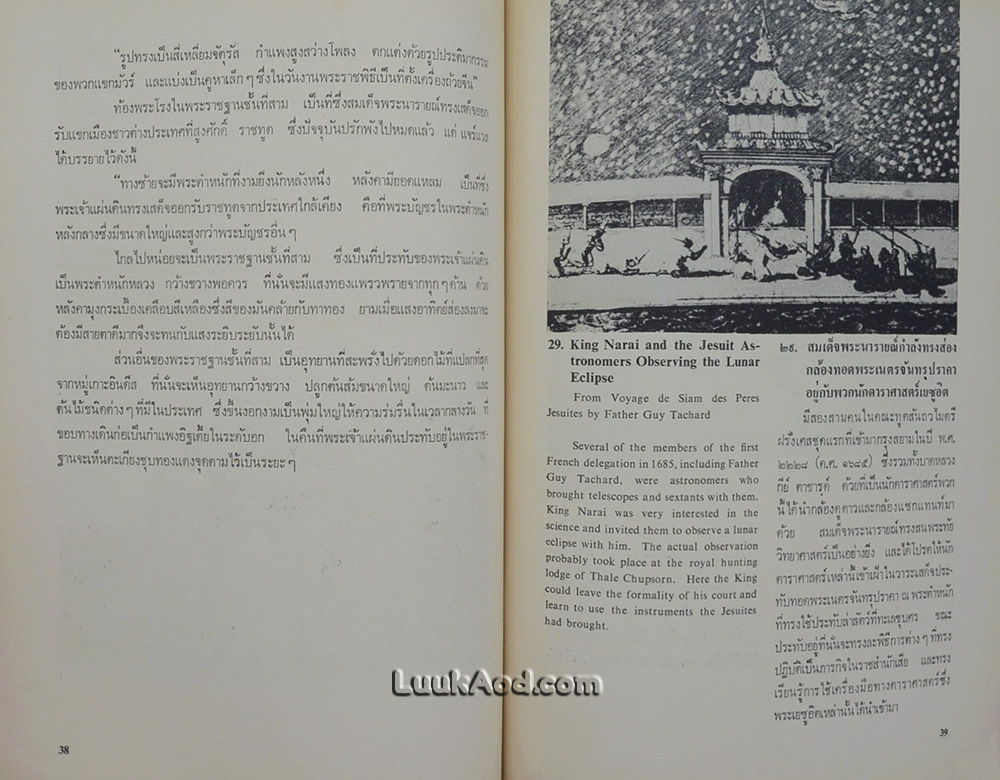 "รูปทรงเป็นสี่เหลี่ยมจัตุรัส กำแพงสูงสว่างโพลง ตกแต่งด้วยรูปประติมากรรม
ของพวกแขกมัวร์ และแบ่งเป็นคูหาเล็ก ๆ ซึ่งในวันงานพระราชพิธีเป็นที่ตั้งเครื่องถ้วยจีน"
ท้องพระโรงในพระราชฐานชั้นที่สาม เป็นที่ซึ่งสมเด็จพระนารายณ์ทรงเสด็จออก
รับแขกเมืองชาวต่างประเทศที่สูงศักดิ์ ราชทูต ซึ่งปัจจุบันปรักพังไปหมดแล้ว แต่ แจร์แวส
ได้บรรยายไว้ดังนี้
"ทางซ้ายจะมีพระตำหนักที่งามยิ่งนักหลังหนึ่ง หลังคามียอดแหลม เป็นที่ซึ่ง
พระเจ้าแผ่นดินทรงเสด็จออกรับราชทูตจากประเทศใกล้เคียง คือที่พระบัญชรในพระตำหนัก
หลังกลางซึ่งมีขนาดใหญ่และสูงกว่าพระบัญชรอื่น ๆ
ไกลไปหน่อยจะเป็นพระราชฐานชั้นที่สาม ซึ่งเป็นที่ประทับของพระเจ้าแผ่นดิน
เป็นพระตำหนักหลวง กว้างขวางพอควร ที่นั่นจะมีแสงทองแพรวพรายจากทุก ๆ ด้าน ด้วย
หลังคามุงกระเบื้องเคลือบสีเหลืองซึ่งสีของมันคล้ายกับทาทอง ยามเมื่อแสงอาทิตย์ส่องลงมาจะ
ต้องมีสายตาดีมากจึงจะทนกับแสงระยิบระยับนั้นได้
ส่วนอื่นของพระราชฐานชั้นที่สาม เป็นอุทยานที่สะพรั่งไปด้วยดอกไม้ที่แปลกที่สุด
จากหมู่เกาะอินดีส ที่นั่นจะเห็นอุทยานกว้างขวาง ปลูกต้นส้มขนาดใหญ่ ต้นมะนาว และ
ต้นไม้ชนิดต่าง ๆ ที่มีในประเทศ ซึ่งขึ้นงอกงามเป็นพุ่มใหญ่ให้ความร่มรื่นในเวลากลางวัน ที่
ขอบทางเดินก่อเป็นกำแพงอิฐเตี้ยในระดับอก ในคืนที่พระเจ้าแผ่นดินประทับอยู่ในพระราช-
ฐานจะเห็นตะเกียงชุบทองแดงจุดตามไว้เป็นระยะ ๆ
38
29. King Narai and the Jesuit As-
tronomers Observing the Lunar
Eclipse
From Voyage de Siam des Peres
Jesuites by Father Guy Tachard
Several of the members of the first
French delegation in 1685, including Father
Guy Tachard, were astronomers who
brought telescopes and sextants with them.
King Narai was very interested in the
science and invited them to observe a lunar
eclipse with him. The actual observation
probably took place at the royal hunting
lodge of Thale Chupsorn. Here the King
could leave the formality of his court and
learn to use the instruments the Jesuites
had brought.
๒๙. สมเด็จพระนารายณ์กำลังทรงส่อง
กล้องทอดพระเนตรจันทรุปราคา
อยู่กับพวกนักดาราศาสตร์เยซูอิต
มีสองสามคนในคณะทูตสันถวไมตรี
ฝรั่งเศสชุดแรกที่เข้ามากรุงสยามในปี พ.ศ.
๒๒๒๘ (ค.ศ. ๑๖๘๕) ซึ่งรวมทั้งบาดหลวง
กีย์ ตาชารด์ ด้วยที่เป็นนักดาราศาสตร์พวก
นี้ได้นำกล้องดูดาวและกล้องแซกแทนท์มา
ด้วย สมเด็จพระนารายณ์ทรงสนพระทัย
วิทยาศาสตร์เป็นอย่างยิ่ง และได้โปรดให้นัก
ดาราศาสตร์เหล่านี้เข้าเฝ้าในวาระเสด็จประ-
ทับทอดพระเนตรจันทรุปราคา ณ พระตำหนัก
ที่ทรงใช้ประทับล่าสัตว์ที่ทะเลชุบศร ขณะ
ประทับอยู่ที่นั่นจะทรงละพิธีการต่าง ๆ ที่ทรง
ปฏิบัติเป็นภารกิจในราชสำนักเสีย และทรง
เรียนรู้การใช้เครื่องมือทางดาราศาสตร์ซึ่ง
พระเยซูอิตเหล่านั้นได้นำเข้ามา
39
LuukAod.com